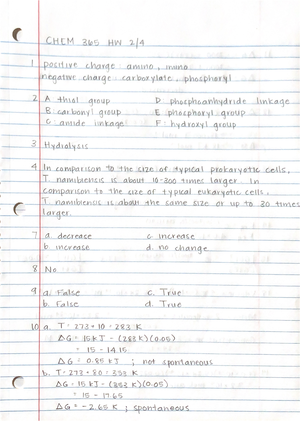 CHEM 365 HW 2/4
1 positive charge: amino, imino
negative charge: carboxylate, phosphoryl
2 A thiol group D phosphoanhydride linkage
B carbonyl group E phosphoryl group
C amide linkage F hydroxyl group
3 Hydrolysis
4 In comparison to the size of typical prokaryotic cells,
T. namibiensis is about 10-300 times larger. In
comparison to the size of typical eukaryotic cells,
T. namibiensis is about the same size or up to 30 times
larger.
7 a. decrease c. increase
b. increase d. no change
8 No
9 a. False c. True
b. False d. True
10 a. T = 273 + 10 = 283 K
ΔG = 15 kJ - (283 K)(0.05)
= 15 - 14.15
ΔG = 0.85 kJ ; not spontaneous
b. T = 273 + 80 = 353 K
ΔG = 15 kJ - (353 K)(0.05)
= 15 - 17.65
ΔG = -2.65 K ; spontaneous